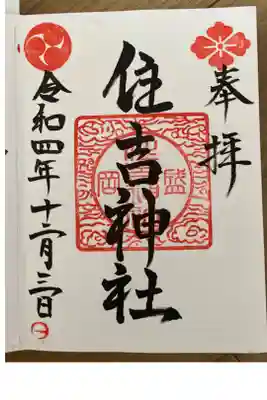 奉拝
住吉神社
盛岡
令和四年十二月三日